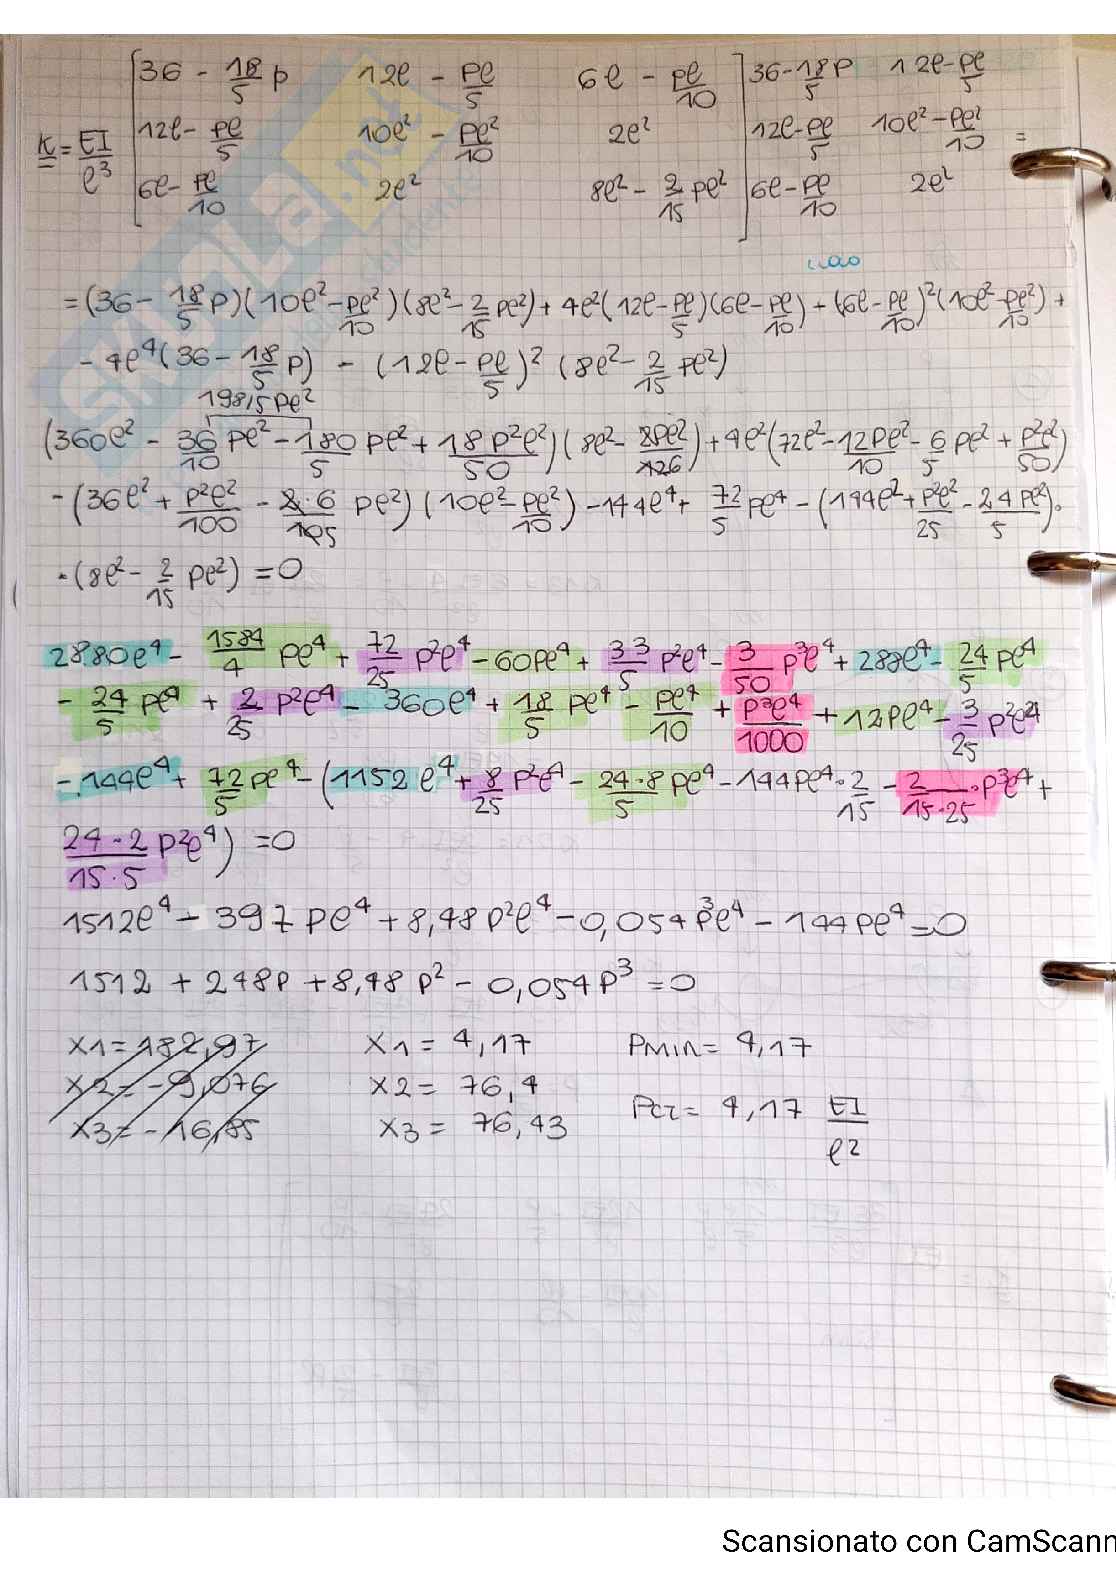 K = EI/ℓ³ [ 36 - 18/5 p   12ℓ - pℓ/5   6ℓ - pℓ/10 ] 36 - 18/5 p   12ℓ - pℓ/5
12ℓ - pℓ/5   10ℓ² - pℓ²/10   2ℓ²   12ℓ - pℓ/5   10ℓ² - pℓ²/10 =
6ℓ - pℓ/10   2ℓ²   8ℓ² - 2/15 pℓ²   6ℓ - pℓ/10   2ℓ²
= (36 - 18/5 p)(10ℓ² - pℓ²/10)(8ℓ² - 2/15 pℓ²) + 4ℓ²(12ℓ - pℓ/5)(6ℓ - pℓ/10) - (6ℓ - pℓ/10)²(10ℓ² - pℓ²/10) +
- 4ℓ⁴(36 - 18/5 p) - (12ℓ - pℓ/5)² (8ℓ² - 2/15 pℓ²)
198/5 pℓ²
(360ℓ² - 36/10 pℓ² - 180/5 pℓ² + 18p²ℓ²/50)(8ℓ² - 2pℓ²/15) + 4ℓ²(72ℓ² - 12pℓ²/10 - 6/5 pℓ² + p²ℓ²/50)
- (36ℓ² + p²ℓ²/100 - 6/5 pℓ²)(10ℓ² - pℓ²/10) - 144ℓ⁴ + 72/5 pℓ⁴ - (144ℓ² + p²ℓ²/25 - 24pℓ²/5) ·
· (8ℓ² - 2/15 pℓ²) = 0
2880ℓ⁴ - 1584/4 pℓ⁴ + 72/25 p²ℓ⁴ - 60pℓ⁴ + 33/5 p²ℓ⁴ - 3/50 p³ℓ⁴ + 288ℓ⁴ - 24/5 pℓ⁴
- 24/5 pℓ⁴ + 2/25 p²ℓ⁴ - 360ℓ⁴ + 18/5 pℓ⁴ - pℓ⁴/10 + p³ℓ⁴/1000 + 12pℓ⁴ - 3/25 p²ℓ⁴
- 144ℓ⁴ + 72/5 pℓ⁴ - (1152ℓ⁴ + 8/25 p²ℓ⁴ - 24·8/5 pℓ⁴ - 144pℓ⁴·2/15 - 2/15·25 · p³ℓ⁴ +
24·2/15·5 p²ℓ⁴) = 0
1512ℓ⁴ - 397pℓ⁴ + 8,48p²ℓ⁴ - 0,054p³ℓ⁴ - 144pℓ⁴ = 0
1512 + 248p + 8,48p² - 0,054p³ = 0
x1 = 182,97   x1 = 4,17   Pmin = 4,17
x2 = -9,076   x2 = 76,4
x3 = -16,85   x3 = 76,43   Pcr = 4,17 EI/ℓ²
Scansionato con CamScann